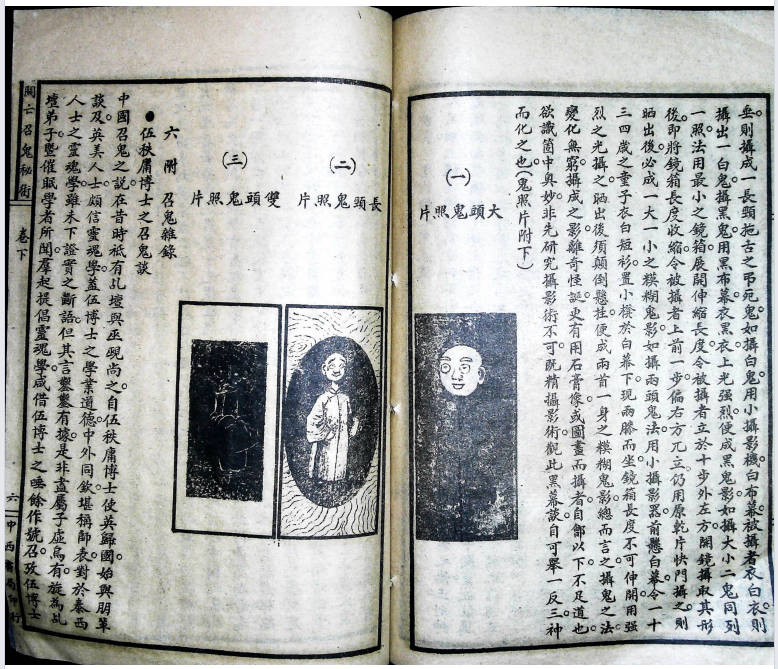 垂。則攝成一長頸拖舌之弔死鬼。如攝白鬼。用小攝影機。白布幕。被攝者衣白衣。則
攝出一白鬼。攝黑鬼。用黑布幕。衣黑衣。上光强烈。便成黑鬼影。如攝大小二鬼同列
一照。法用最小之鏡箱。展開伸縮長度。令被攝者立於十步外左方。開鏡攝取其形
後。即將鏡箱長度收縮。令被攝者上前一步。偏右方兀立。仍用原乾片快門攝之。則
晒出後。必成一大一小之糢糊鬼影。如攝兩頭鬼法。用小攝影器。前懸白幕。令一十
三四歲之童子。衣白短衫。置小櫈於白幕下。現兩膝而坐。鏡箱長度不可伸開。用强
烈之光攝之。晒出後須顛倒懸挂。便成兩首一身之糢糊鬼影。總而言之。攝鬼之法。
變化無窮。攝成之影。離奇怪誕。更有用石膏像。或圖畫而攝者。自鄶以下。不足道也。
欲識箇中奧妙。非先研究攝影術不可。旣精攝影術。觀此黑幕談。自可舉一反三。神
而化之也。(鬼照片附下)
(一)
大頭鬼照片
(二)
長頸鬼照片
(三)
雙頭鬼照片
六 附 召鬼雜錄
●伍秩庸博士之召鬼談
中國召鬼之說。在昔時祗有乩壇與巫覡尚之。自伍秩庸博士使英歸國。始與朋輩
談及英美人士。頗信靈魂學。蓋伍博士之學業道德。中外同欽。堪稱師表。對於泰西
人士之靈魂學。雖未下證實之斷語。但其言鑿鑿有據。是非盡屬子虛烏有。旋爲乩
壇弟子曁催眠學者所聞。羣起提倡靈魂學。咸借伍博士之唾餘作號召。攷伍博士
關亡召鬼秘術
卷下
六
中西書局印行